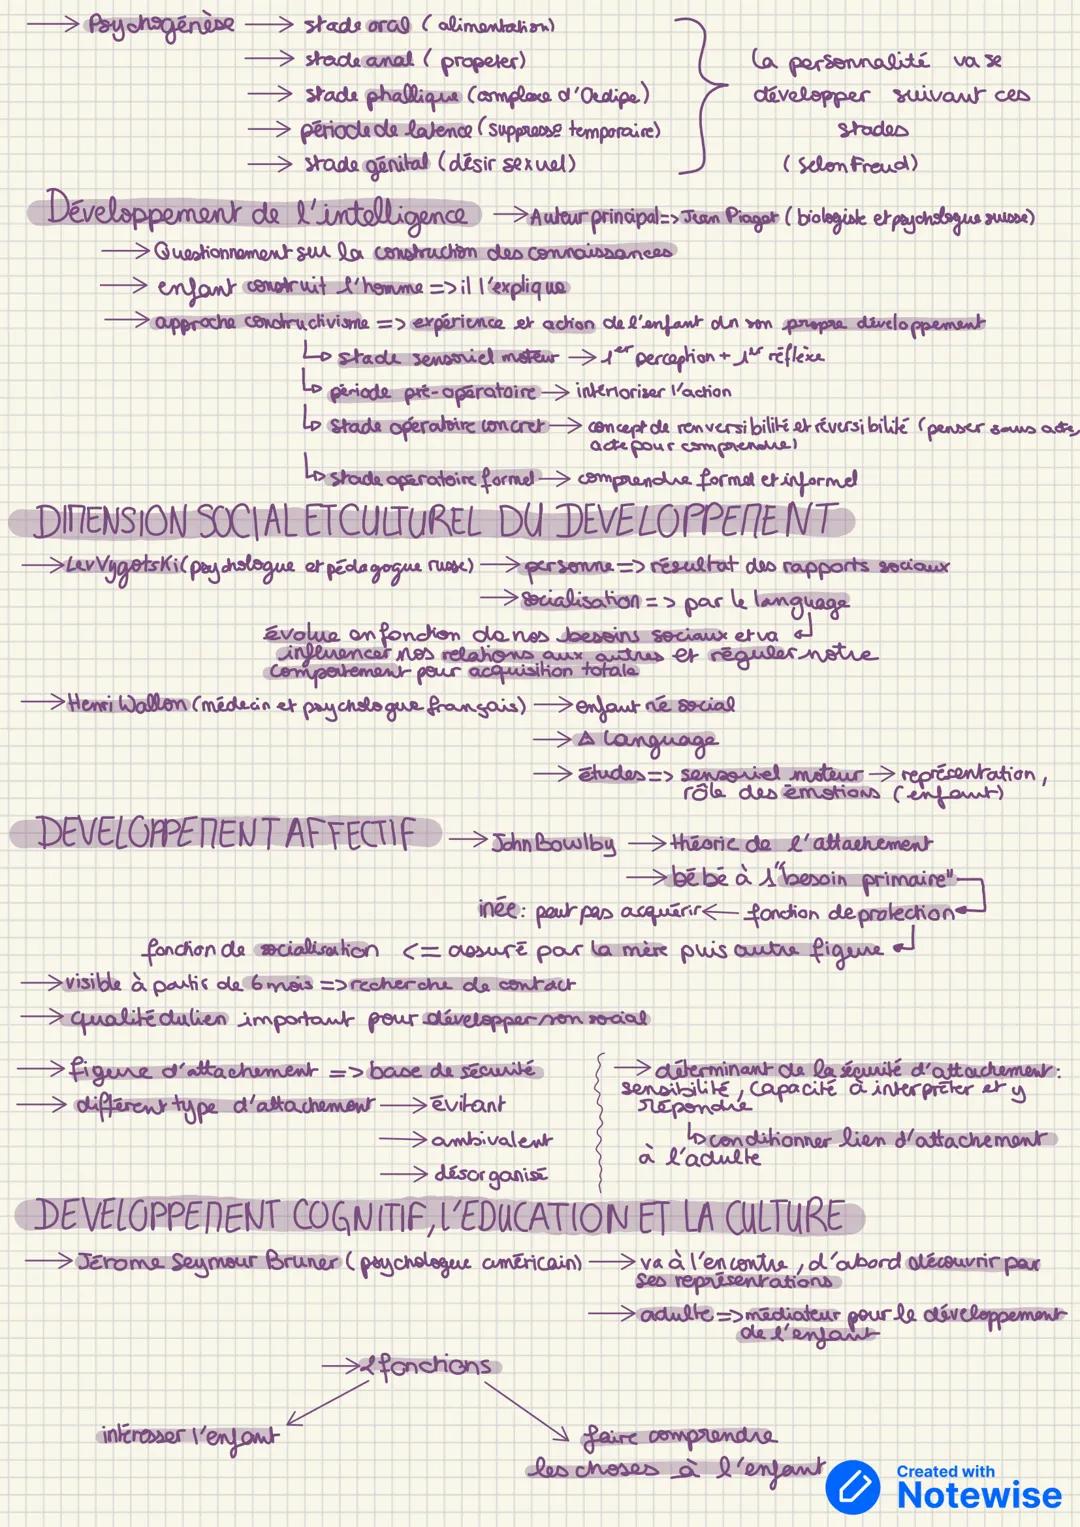 → Psychogénèse → stade oral (alimentation)
→ stade anal (propeter)
→ stade phallique (complexe d'Oedipe)
→ période de latence (suppresse temporaire)
→ stade génital (désir sexuel)
La personnalité va se
développer suivant ces
stades
(selon Freud)
Développement de l'intelligence → Auteur principal => Jean Piaget (biologiste et psychologue suisse)
→ Questionnement sur la construction des connaissances
→ enfant construit l'homme => il l'explique
→ approche constructivisme => expérience et action de l'enfant dn son propre développement
↳ stade sensoriel moteur → 1er perception + 1er réflexe
↳ période pré-opératoire → intérioriser l'action
↳ stade opératoire concret → concept de renversibilité et réversibilité (penser sans acte,
acte pour comprendre)
↳ stade opératoire formel → comprendre formel et informel
DIMENSION SOCIAL ET CULTUREL DU DEVELOPPEMENT
→ Lev Vygotski (psychologue et pédagogue russe) → personne => résultat des rapports sociaux
→ socialisation => par le language
évolue en fonction de nos besoins sociaux et va
influencer nos relations aux autres et réguler notre
comportement pour acquisition totale
→ Henri Wallon (médecin et psychologue français) → enfant né social
→ Δ language
→ études => sensoriel moteur → représentation,
rôle des émotions (enfant)
DEVELOPPEMENT AFFECTIF → John Bowlby → théorie de l'attachement
→ bébé à 1 "besoin primaire"
inée : peut pas acquérir ← fonction de protection
fonction de socialisation <= assuré par la mère puis autre figure
→ visible à partir de 6 mois => recherche de contact
→ qualité du lien important pour développer son social
→ figure d'attachement => base de sécurité
→ différent type d'attachement → évitant
→ ambivalent
→ désorganisé
→ déterminant de la sécurité d'attachement :
sensibilité, capacité à interpréter et y
répondre
↳ conditionner lien d'attachement
à l'adulte
DEVELOPPEMENT COGNITIF, L'EDUCATION ET LA CULTURE
→ Jérome Seymour Bruner (psychologue américain) → va à l'encontre, d'abord découvrir par
ses représentations
→ adulte => médiateur pour le développement
de l'enfant
→ 2 fonctions
intéresser l'enfant
faire comprendre
les choses à l'enfant
Created with
Notewise